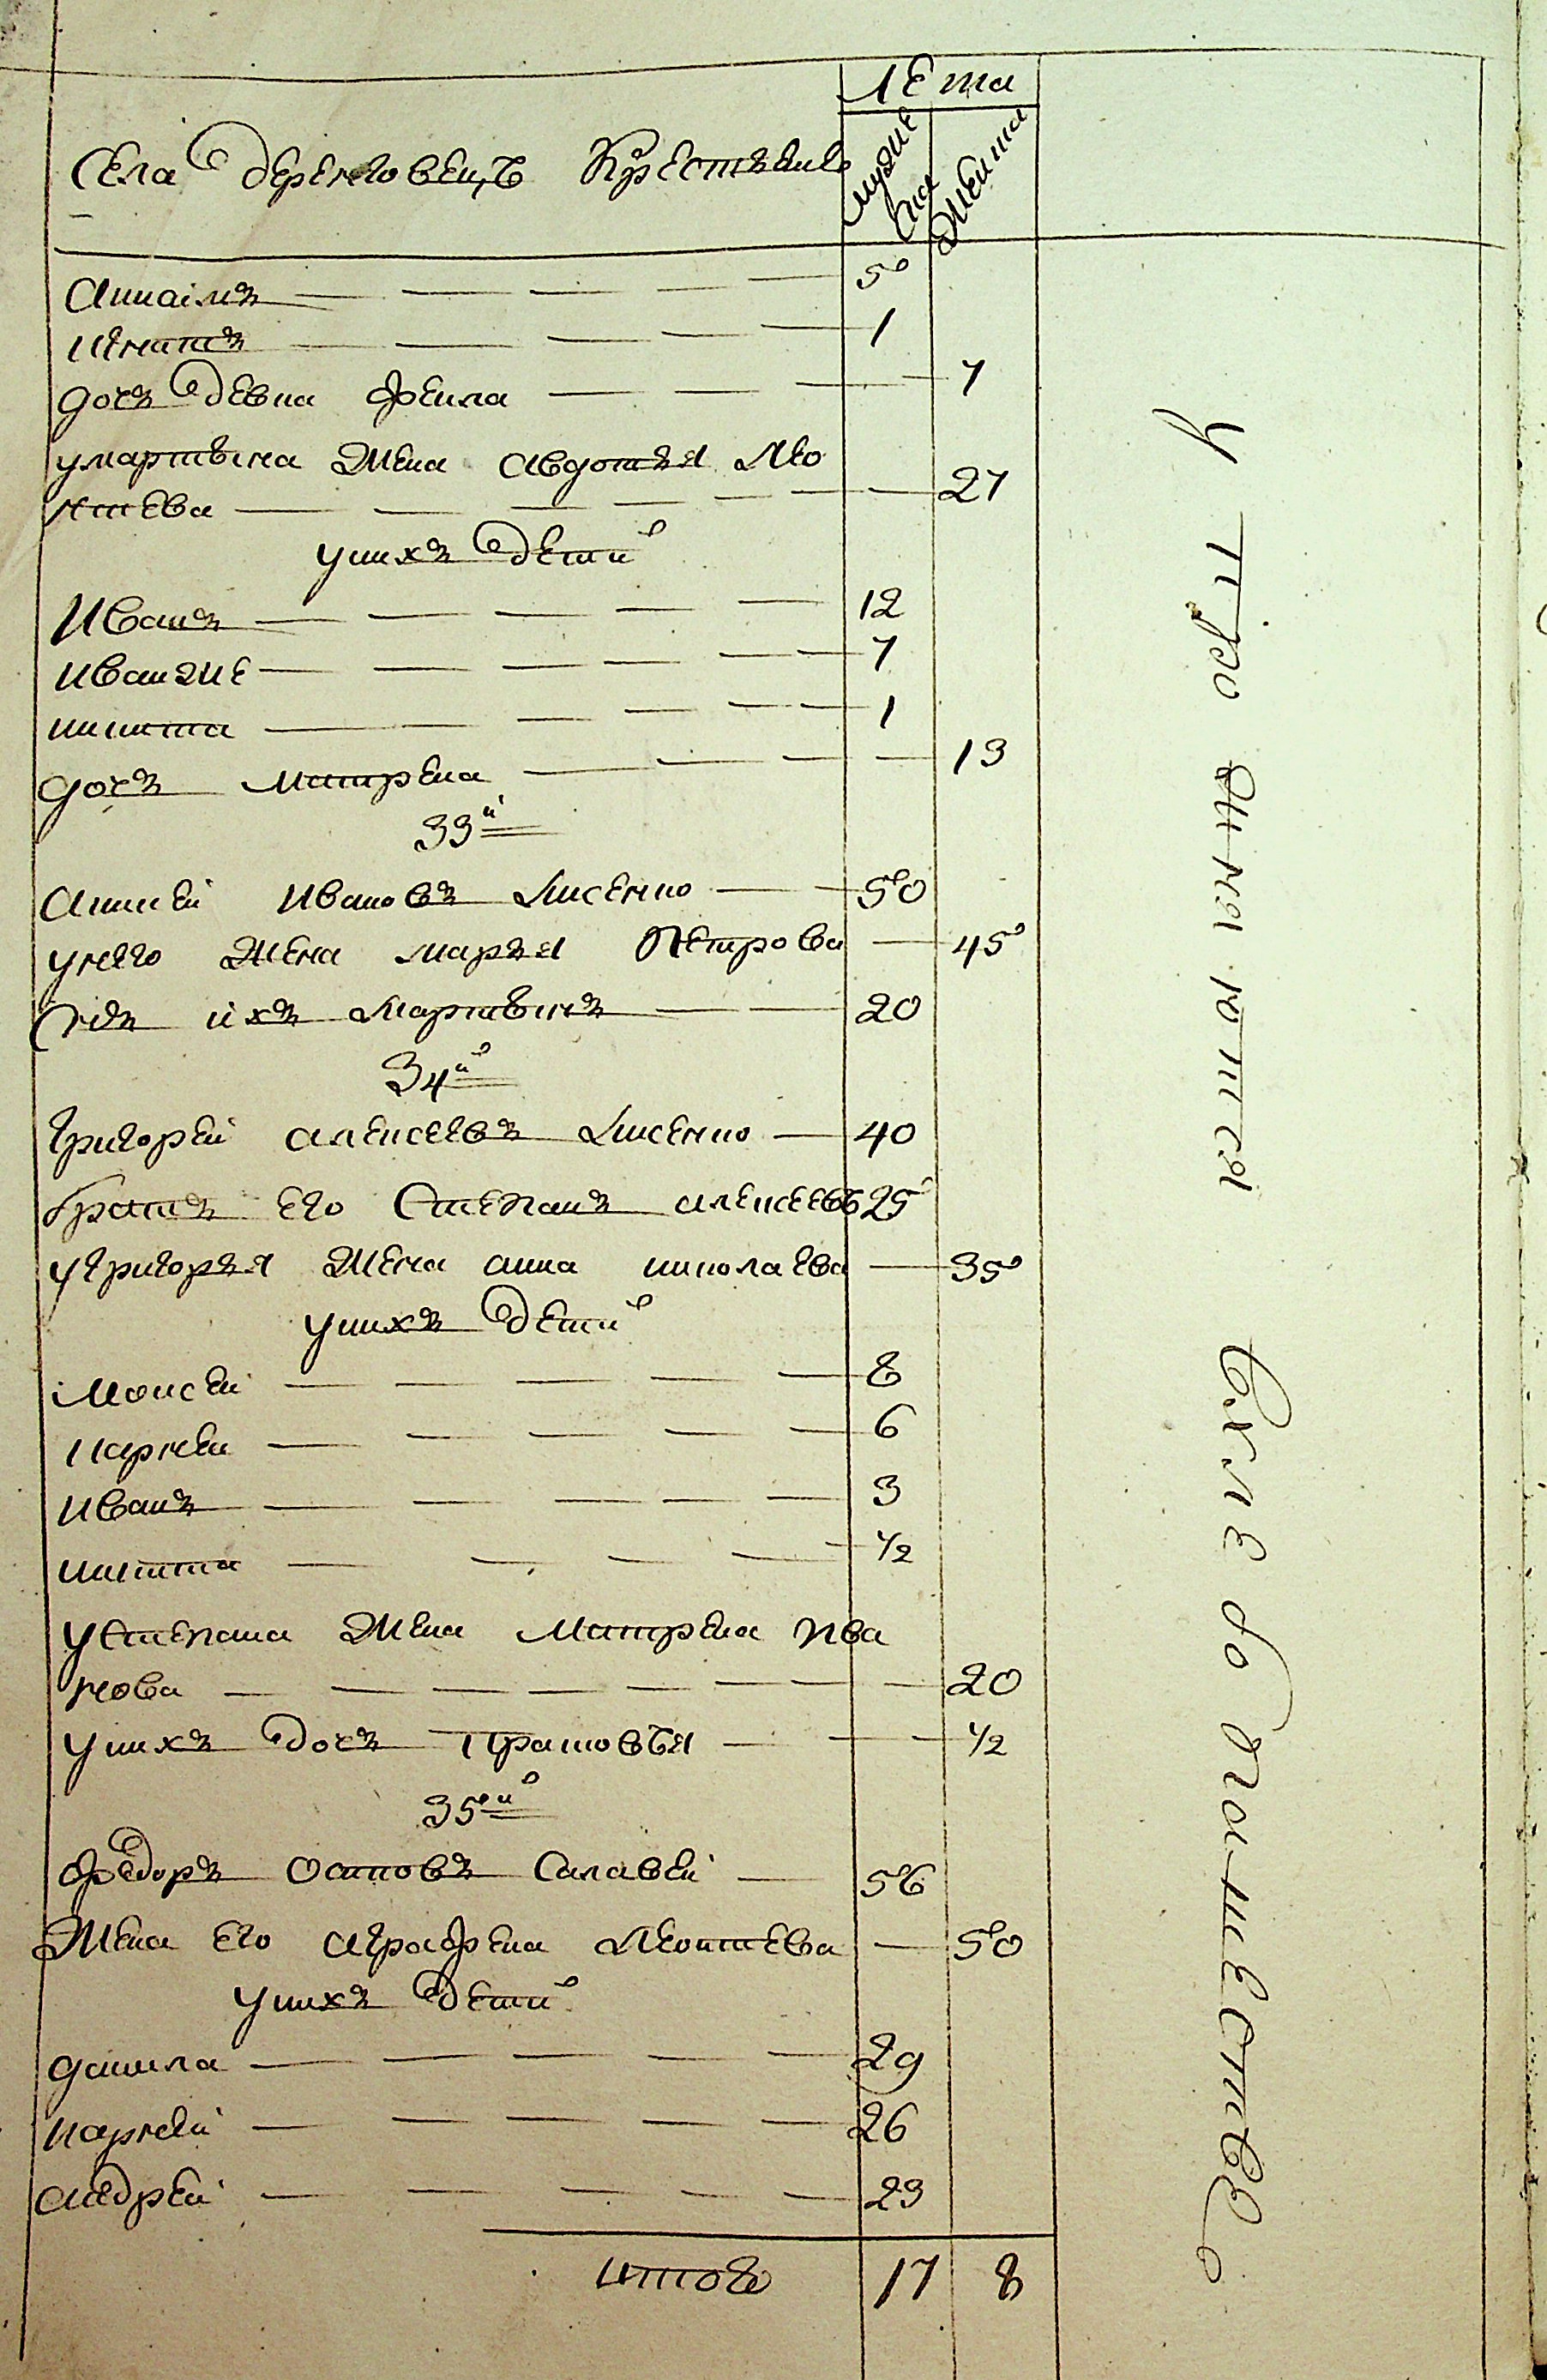 Села Деренговецъ Крестьяне
лета
мужеска
женска
Данаилъ 5
Игнатъ 1
дочъ девка фекла 7
умартына жена авдотъя Лео
нтева 27
унихъ детей
Иванъ 12
иванже 7
никита 1
дочъ матрена 13
33й
Алексей ивановъ Лисенко 50
унего жена маръя Петрова 45
Сынъ ихъ мартынъ 20
34й
григорей алексеевъ Лисенко 40
братъ его Степанъ алексеевъ 25
угригоръя жена анна николаева 35
унихъ детей
моисей 8
карней 6
иванъ 3
никита 1/2
устепана жена матрена ива
нова 20
унихъ дочъ прасковъя 1/2
35й
федоръ Осиповъ Салавей 56
Жена его аграфена Леонтева 50
унихъ детей
данила 29
карней 26
андрей 23
итого 17 8